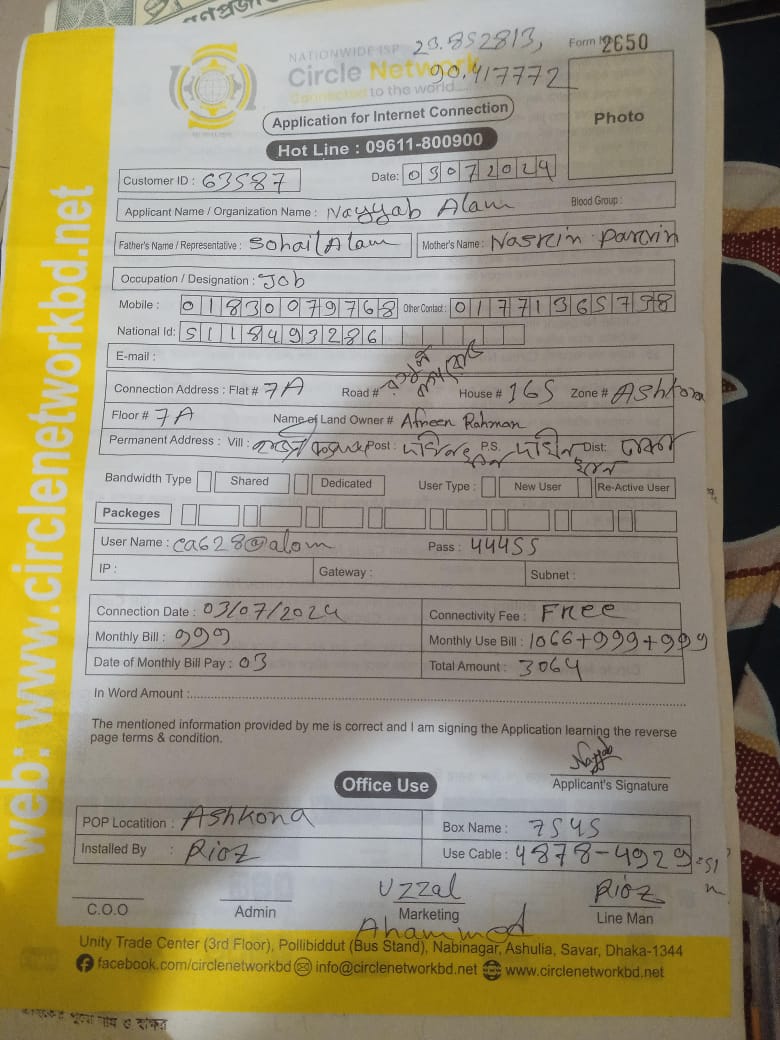 গণপ্রজা
NATIONWIDE ISP 23.852813,
Form No 2650
Circle Network 90.417772
Connected to the world
Photo
Application for Internet Connection
Hot Line : 09611-800900
Customer ID : 63587 Date: 03072024
Applicant Name / Organization Name : Nayyab Alam Blood Group :
Father's Name / Representative : Sohail Alam Mother's Name : Nasrin Parvin
Occupation / Designation : Job
Mobile : 01830079768 Other Contact : 01771365738
National Id: 5118493286
E-mail :
Connection Address : Flat # 7A Road # House # 165 Zone # Ashkona
Floor # 7A Name of Land Owner # Afreen Rahman
Permanent Address : Vill : Post : P.S. Dist: ঢাকা
Bandwidth Type Shared Dedicated User Type : New User Re-Active User
Packeges
User Name : ca628@alom Pass : 44455
IP : Gateway : Subnet :
Connection Date : 03/07/2024 Connectivity Fee : Free
Monthly Bill : 999 Monthly Use Bill : 1066+999+999
Date of Monthly Bill Pay : 03 Total Amount : 3064
In Word Amount :
The mentioned information provided by me is correct and I am signing the Application learning the reverse
page terms & condition.
Nayyab
Applicant's Signature
Office Use
POP Locatition : Ashkona Box Name : 7545
Installed By : Rioz Use Cable : 4878-4929=51
m
Uzzal Rioz
C.O.O Admin Marketing Line Man
Ahammod
Unity Trade Center (3rd Floor), Pollibiddut (Bus Stand), Nabinagar, Ashulia, Savar, Dhaka-1344
facebook.com/circlenetworkbd info@circlenetworkbd.net www.circlenetworkbd.net
web: www.circlenetworkbd.net